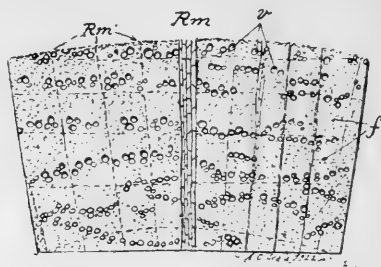 Rm
Rm
v
f